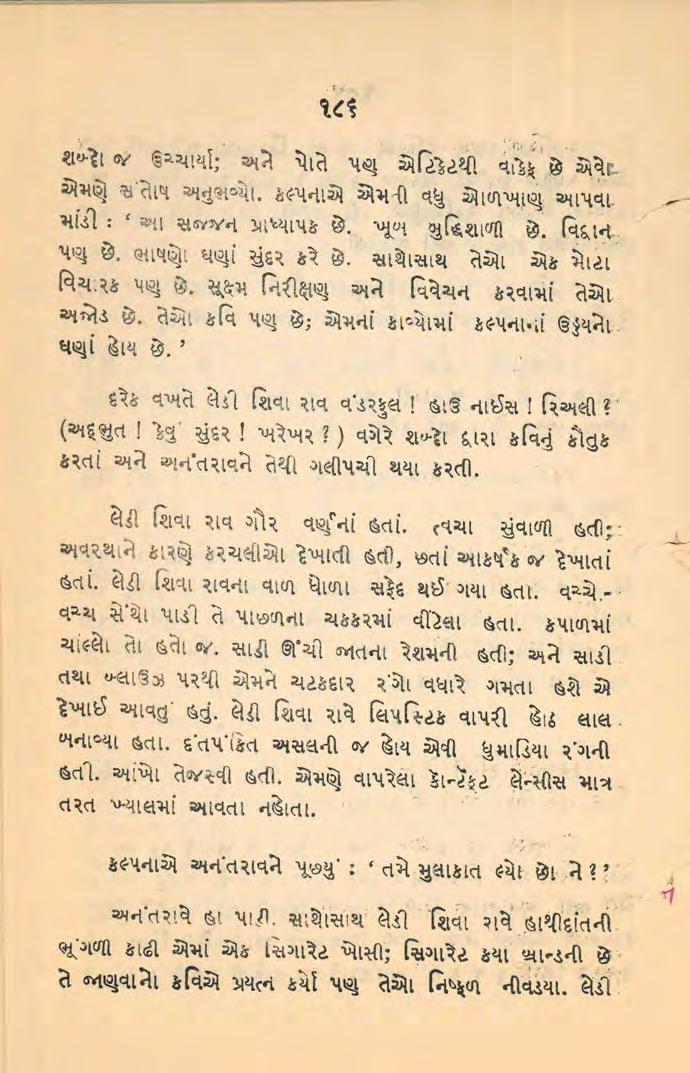 ૧૮૬
શબ્દો જ ઉચ્ચાર્યા; અને પોતે પણ એટિકેટથી વાકેફ છે એવો
એમણે સંતોષ અનુભવ્યો. કલ્પનાએ એમની વધુ ઓળખાણ આપવા
માંડી : ‘ આ સજ્જન પ્રાધ્યાપક છે. ખૂબ બુદ્ધિશાળી છે. વિદ્વાન
પણ છે. ભાષણો ઘણાં સુંદર કરે છે. સાથોસાથ તેઓ એક મોટા
વિચારક પણ છે. સૂક્ષ્મ નિરીક્ષણ અને વિવેચન કરવામાં તેઓ
અજોડ છે. તેઓ કવિ પણ છે; એમનાં કાવ્યોમાં કલ્પનાનાં ઉડ્ડયનો
ઘણાં હોય છે. ’
દરેક વખતે લેડી શિવા રાવ વંડરફુલ ! હાઉ નાઈસ ! રિઅલી ?
(અદ્ભુત ! કેવું સુંદર ! ખરેખર ? ) વગેરે શબ્દો દ્વારા કવિનું કૌતુક
કરતાં અને અનંતરાવને તેથી ગલીપચી થયા કરતી.
લેડી શિવા રાવ ગૌર વર્ણનાં હતાં. ત્વચા સુંવાળી હતી;
અવસ્થાને કારણે કરચલીઓ દેખાતી હતી, છતાં આકર્ષક જ દેખાતાં
હતાં. લેડી શિવા રાવના વાળ ધોળા સફેદ થઈ ગયા હતા. વચ્ચે-
વચ્ચ સેંથો પાડી તે પાછળના ચક્કરમાં વીંટેલા હતા. કપાળમાં
ચાંલ્લો તો હતો જ. સાડી ઊંચી જાતના રેશમની હતી; અને સાડી
તથા બ્લાઉઝ પરથી એમને ચટકદાર રંગો વધારે ગમતા હશે એ
દેખાઈ આવતું હતું. લેડી શિવા રાવે લિપસ્ટિક વાપરી હોઠ લાલ
બનાવ્યા હતા. દંતપંક્તિ અસલની જ હોય એવી ધુમાડિયા રંગની
હતી. આંખો તેજસ્વી હતી. એમણે વાપરેલા કૉન્ટૅક્ટ લૅન્સીસ માત્ર
તરત ખ્યાલમાં આવતા નહોતા.
કલ્પનાએ અનંતરાવને પૂછ્યું : ‘ તમે મુલાકાત લ્યો છો ને ? ’
અનંતરાવે હા પાડી. સાથોસાથ લેડી શિવા રાવે હાથીદાંતની
ભૂંગળી કાઢી એમાં એક સિગારેટ ખોસી; સિગારેટ કયા બ્રાન્ડની છે
તે જાણવાનો કવિએ પ્રયત્ન કર્યો પણ તેઓ નિષ્ફળ નીવડ્યા. લેડી